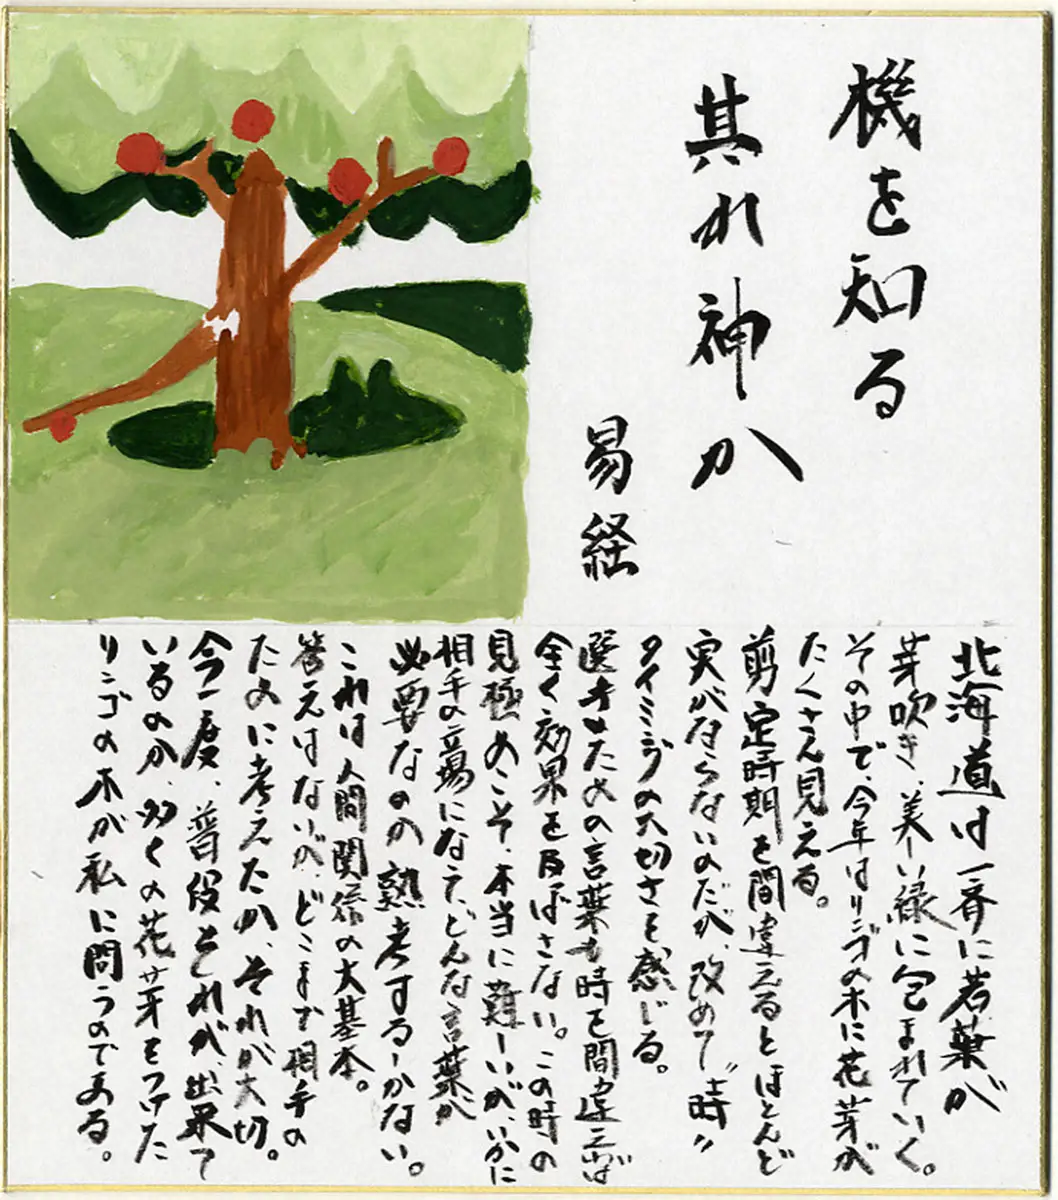 機を知る
其れ神か
易経
北海道は一斉に若葉が
芽吹き、美しい緑に包まれていく。
その中で、今年はリンゴの木に花芽が
たくさん見える。
剪定時期を間違えるとほとんど
実がならないのだが、改めて〝時〟
タイミングの大切さを感じる。
選ぎせための言葉も時を間違えば
全く効果を及ぼさない。この時の
見極めこそ、本当に難しいが、いかに
相手の立場になって、どんな言葉が
必要なのか熟考するしかない。
これは人間関係の大基本。
答えはないが、どこまで相手の
ために考えたか、それが大切。
今一度、普段それが、出来て
いるのか、多くの花芽をつけた
リンゴの木が私に問うのである。